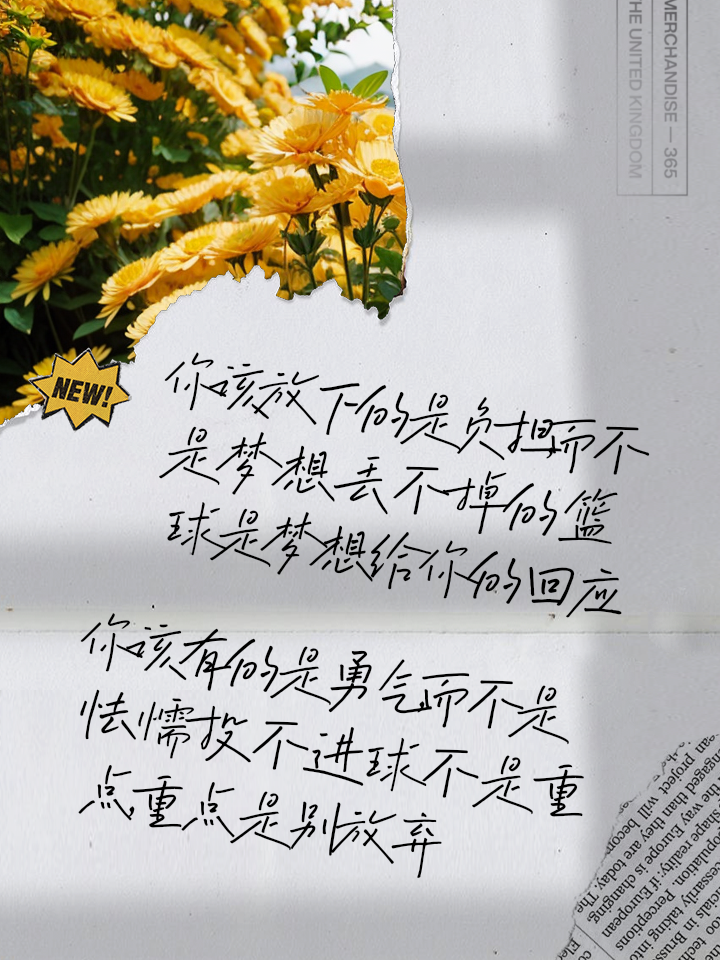 MERCHANDISE — 365
THE UNITED KINGDOM
NEW!
你该放下的是负担而不
是梦想丢不掉的篮
球是梦想给你的回应
你该有的是勇气而不是
怯懦投不进球不是重
点,重点是别放弃
too techn
cials in Bruss
cessarily taking in
opulation. Perceptions
shape reality: if European
the way Europe is changing
ngaged than they are today. The
an project will becom